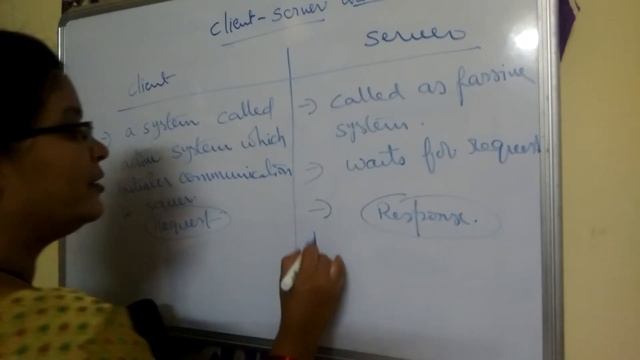 client-server
client
→ a system called
system which
communication
Request
server
→ called as passive
system.
→ waits for request.
→ Response.